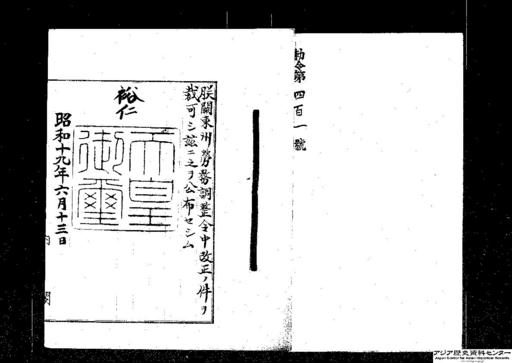 勅令第四百一號
朕關東州勞務調整令中改正ノ件ヲ
裁可シ茲ニ之ヲ公布セシム
裕仁
天皇御璽
昭和十九年六月十三日
内閣
アジア歴史資料センター
Japan Center for Asian Historical Records